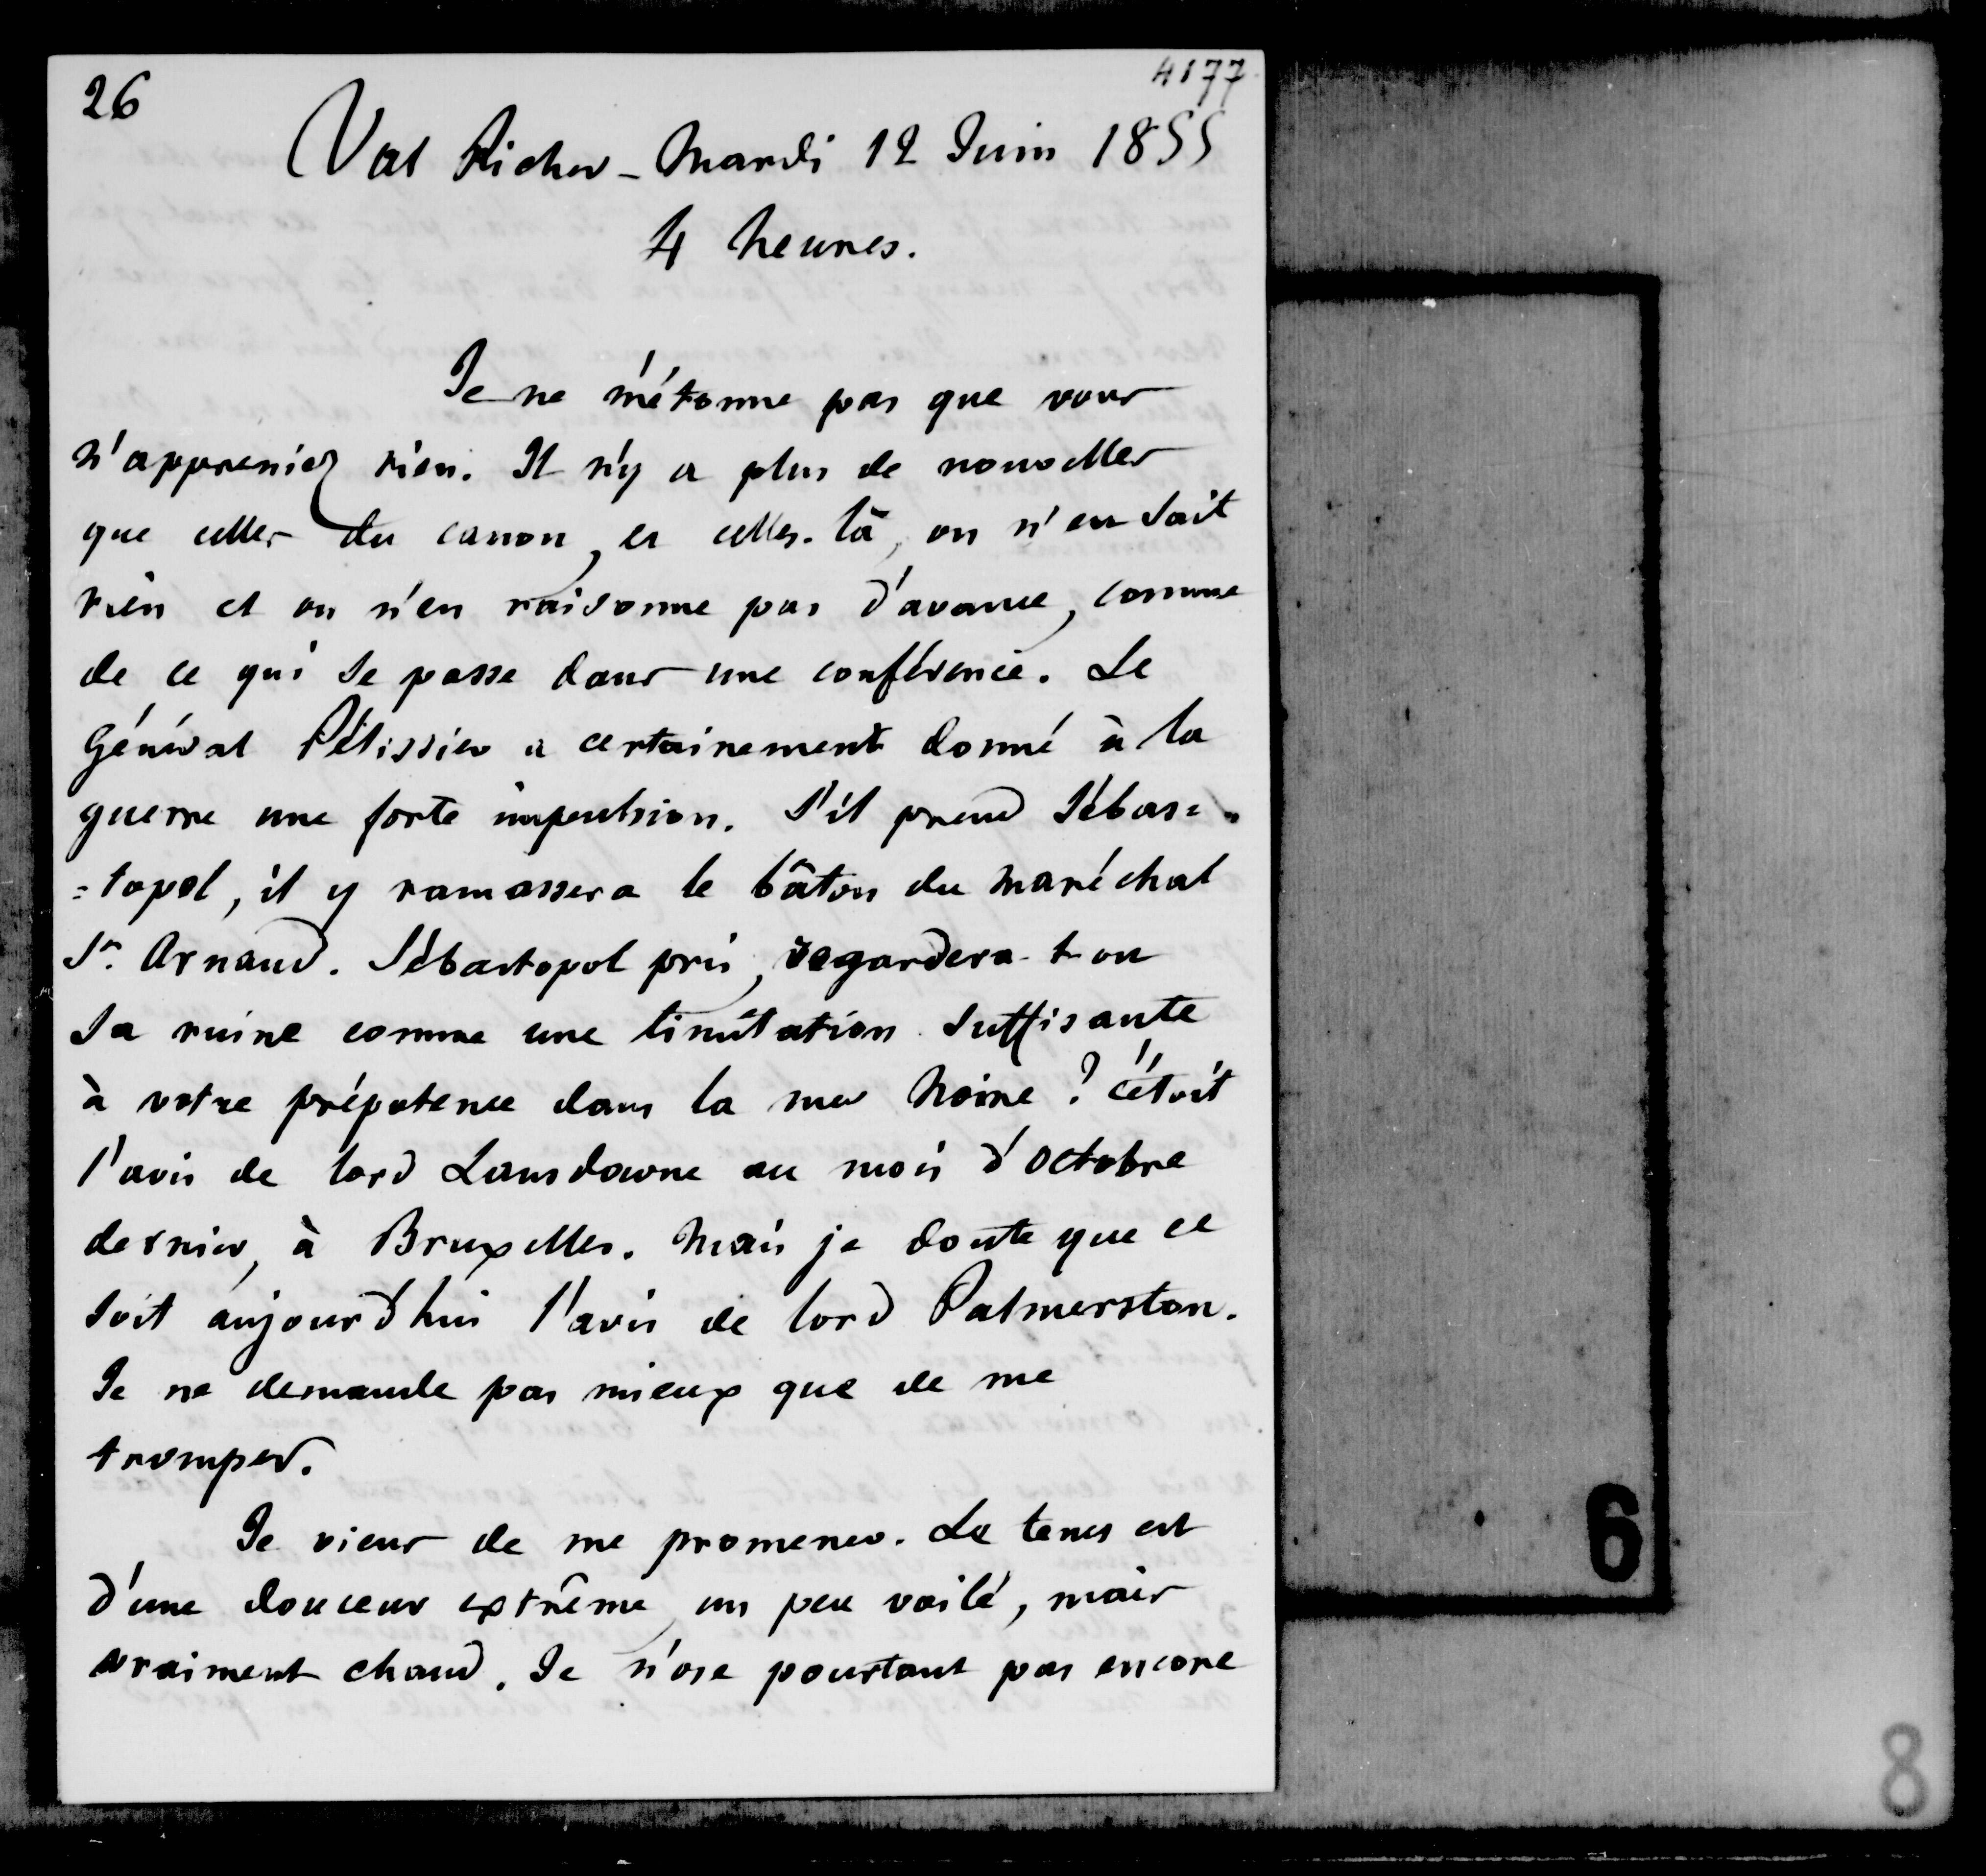 4177
26
Val Richer - Mardi 12 Juin 1855
4 heures.
Je ne m'étonne pas que vous
n'appreniez rien. Il n'y a plus de nouvelles
que celles du canon, et celles-là, on n'en sait
rien et on n'en raisonne pas d'avance, comme
de ce qui se passe dans une conférence. Le
Général Pélissier a certainement donné à la
guerre une forte impulsion. S'il prend Sébas=
=topol, il y ramassera le bâton du maréchal
St. Arnaud. Sébastopol pris, regardera-t-on
sa ruine comme une limitation suffisante
à votre prépotence dans la mer Noire ? C'étoit
l'avis de lord Lansdowne au mois d'octobre
dernier, à Bruxelles. Mais je doute que ce
soit aujourd'hui l'avis de lord Palmerston.
Je ne demande pas mieux que de me
tromper.
Je viens de me promener. Le tems est
d'une douceur extrême, un peu voilé, mais
vraiment chaud. Je n'ose pourtant pas encore
6
8